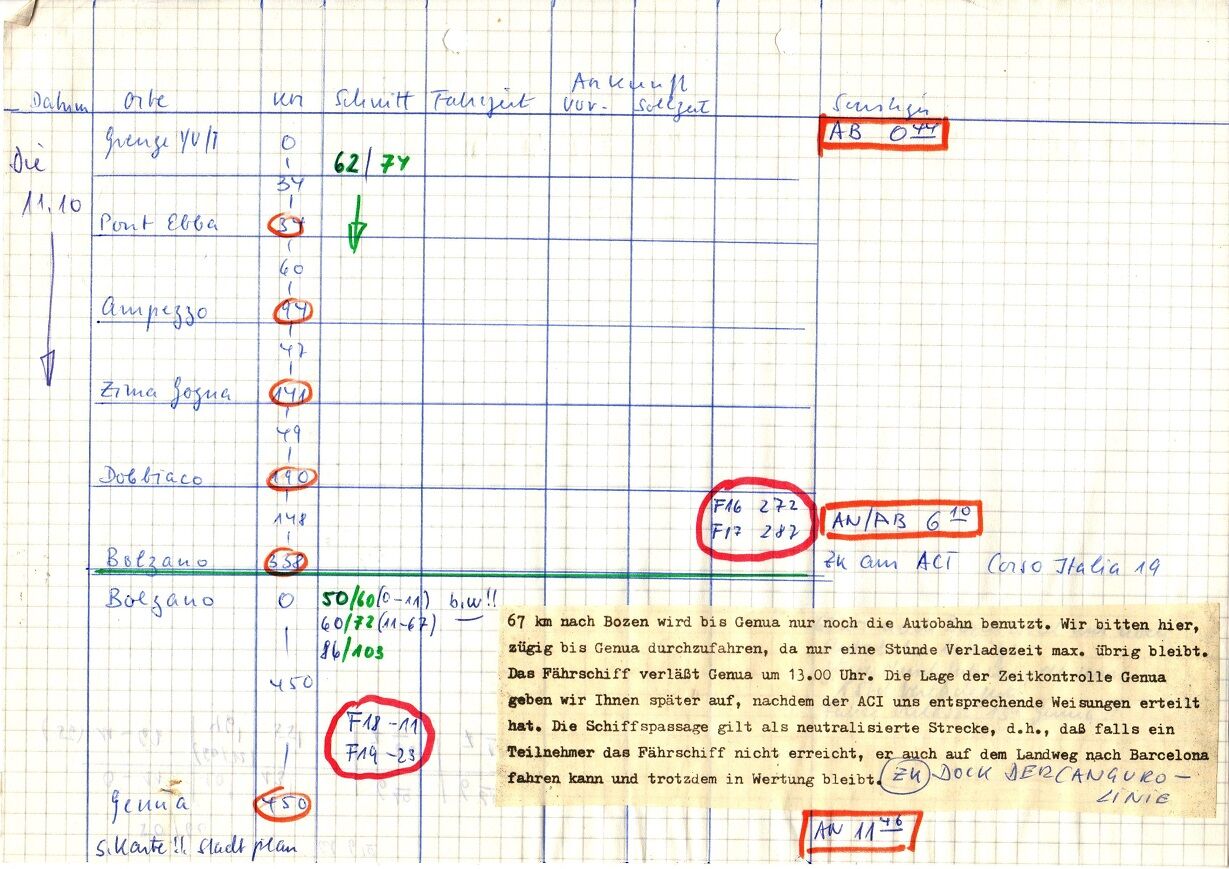 Ankunft
Datum Orte km Schnitt Fahrzeit vor. Sollzeit Sonstiges
AB 0 44
Grenze YU/I 0
Die 62/74
34
11.10
Pont Ebba 34
60
Ampezzo 94
47
Zima Gogna 141
49
Dobbiaco 190
F16 272
148 F17 287 AN/AB 6 10
Bolzano 338
ZK am ACI Corso Italia 19
Bolzano 0 50/60 (0-11) b.w!!
60/72 (11-67)
86/103
450
67 km nach Bozen wird bis Genua nur noch die Autobahn benutzt. Wir bitten hier,
zügig bis Genua durchzufahren, da nur eine Stunde Verladezeit max. übrig bleibt.
Das Fährschiff verläßt Genua um 13.00 Uhr. Die Lage der Zeitkontrolle Genua
geben wir Ihnen später auf, nachdem der ACI uns entsprechende Weisungen erteilt
hat. Die Schiffspassage gilt als neutralisierte Strecke, d.h., daß falls ein
Teilnehmer das Fährschiff nicht erreicht, er auch auf dem Landweg nach Barcelona
fahren kann und trotzdem in Wertung bleibt. ZK DOCK DER CANGURO-
LINIE
F18 -11
F19 -23
Genua 450
AN 11 46
s. Karte!! Stadtplan